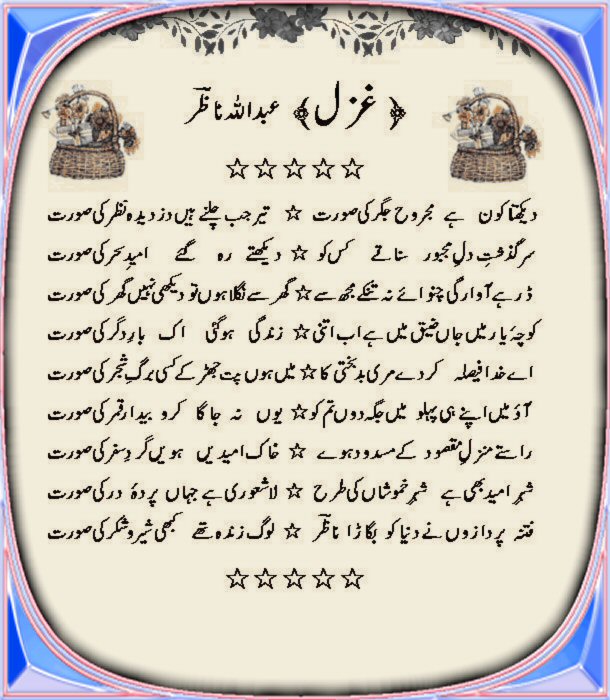 ﴿ غزل ﴾ عبداللہ ناظرؔ
☆☆☆☆☆
دیکھتا کون ہے مجروح جگر کی صورت ☆ تیر جب چلتے ہیں دزدیدہ نظر کی صورت
سرگذشتِ دلِ مجبور سناتے کس کو ☆ دیکھتے رہ گئے امیدِ سحر کی صورت
ڈر ہے آوارگی چنوائے نہ تنکے مجھ سے ☆ گھر سے نکلا ہوں تو دیکھی نہیں گھر کی صورت
کوچۂ یار میں جاں ضیق میں ہے اب اتنی ☆ زندگی ہو گئی اک بارِ دگر کی صورت
اے خدا فیصلہ کر دے مری بدبختی کا ☆ میں ہوں پت جھڑ کے کسی برگِ شجر کی صورت
آؤ میں اپنے ہی پہلو میں جگہ دوں تم کو ☆ یوں نہ جاگا کرو بیدار قمر کی صورت
راستے منزلِ مقصود کے مسدود ہوے ☆ خاک امیدیں ہویں گردِ سفر کی صورت
شہرِ امید بھی ہے شہرِ خموشاں کی طرح ☆ لاشعوری ہے جہاں پردۂ در کی صورت
فتنہ پردازوں نے دنیا کو بگاڑا ناظرؔ ☆ لوگ زندہ تھے کبھی شیر و شکر کی صورت
☆☆☆☆☆